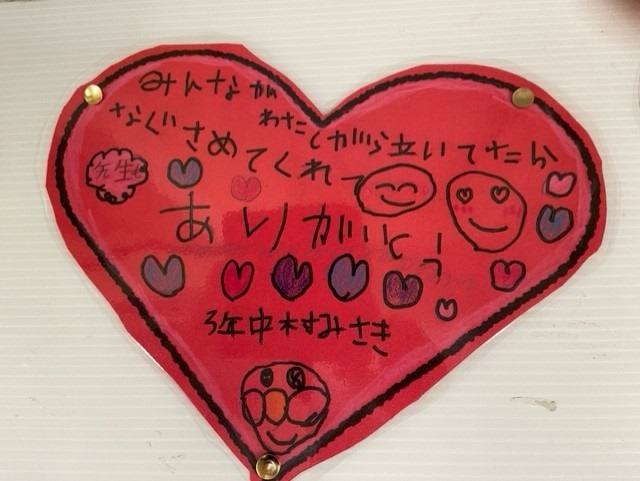 みんなが
わたしがら泣いてたら
なぐさめてくれて
先生に
ありがとう
弥中村みさき